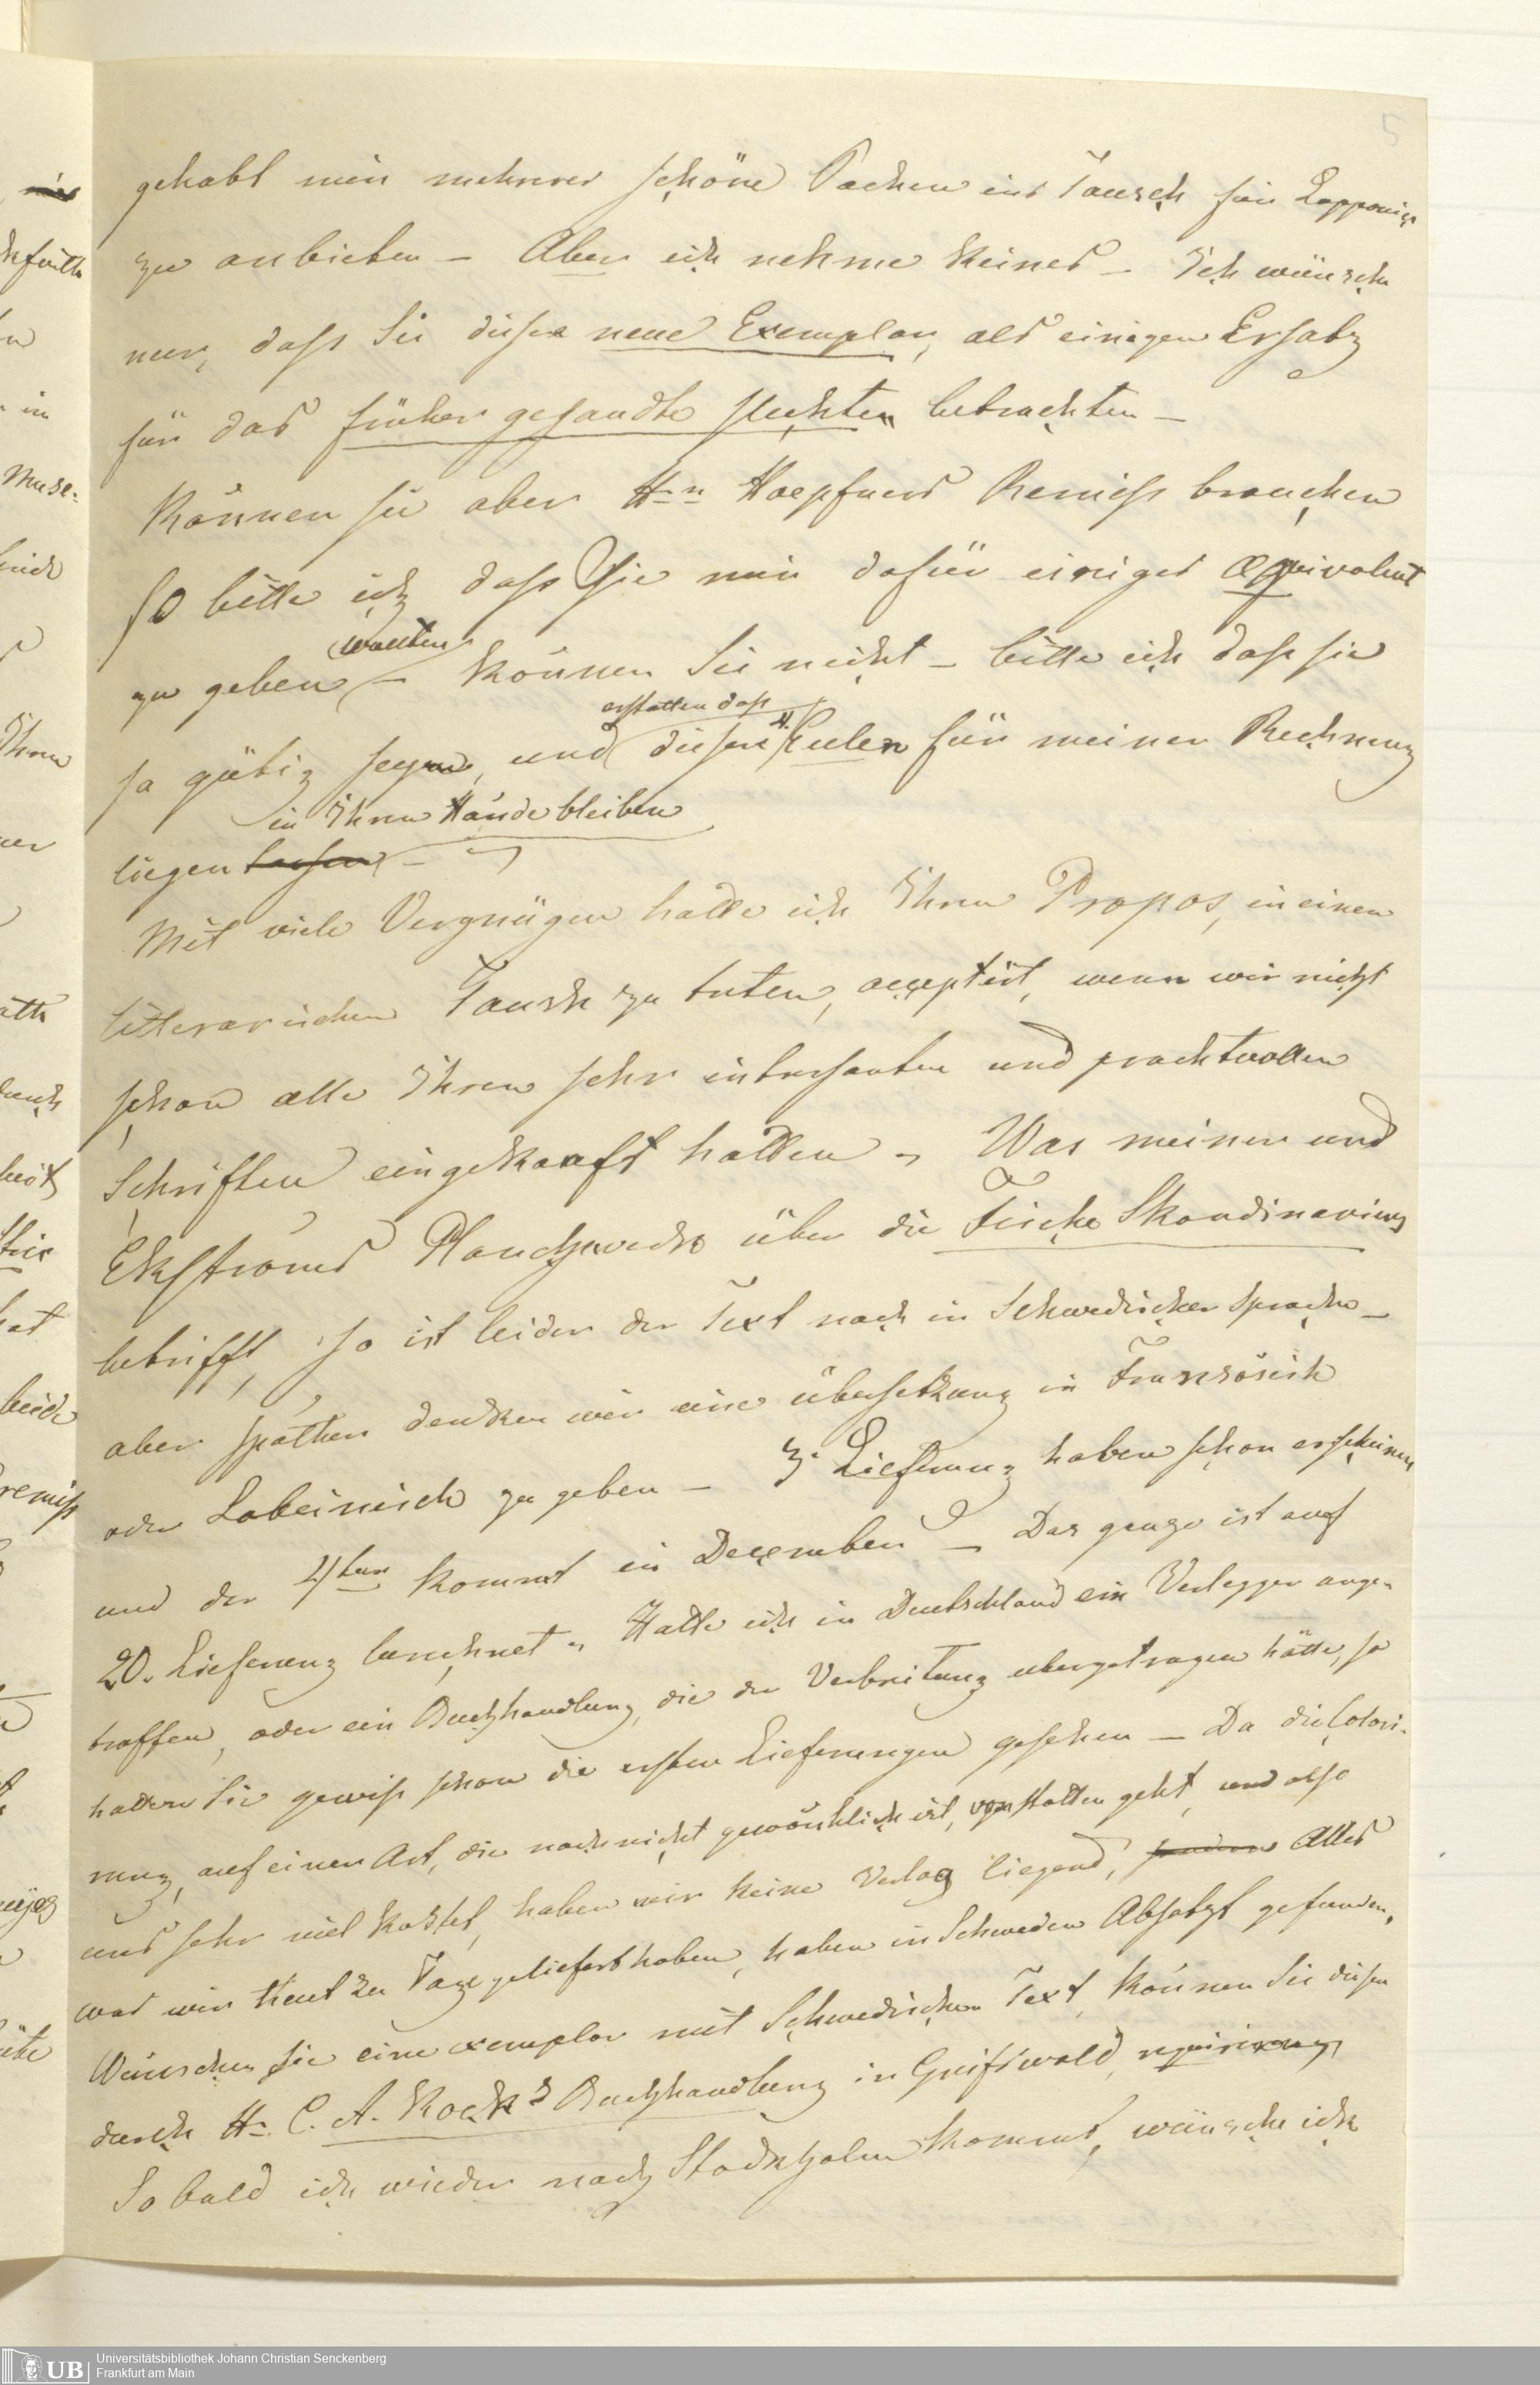 5
gehabt mir mehrerer schöne Sachen ins Tausch für Lapponica
zu anbieten – Aber ich nehme keines – Ich wünsche
nur, dass Sie dieses neue Exemplar, als einigen Ersatz
für das früher gesandte schlechten betrachten –
Können sie aber Hrn Hoepfners Remiss brauchen
so bitte ich dass Sie mir dafür einiges æquivalent
wollten
zu geben – können Sie nicht – bitte ich dass sie
erstatten dass
so gütig seyn, und diesen Eulen für meiner Rechnung
in Ihren Hände bleiben
liegen lassen –
Mit viele Vergnügen hatte ich Ihren Propos, in einen
litterarischen Tausch zu treten, acceptirt, wenn wir nicht
schon alle Ihren sehr intressanten und prachtvollen
Schriften eingekauft hatten – Was meinen und
Ekströms Planchwerke über die Fische Skandinaviens
betrifft, so ist leider der Text noch in Schwedischer Sprache –
aber später denken wir eine übersetzung in Französisch
oder Lateinisch zu geben – 3. Lieferung haben schon erscheinen
und der 4ten kommt in December – Das ganze ist auf
20. Lieferung berechnet – Hatte ich in Deutschland ein Verlegger ange-
troffen, oder ein Buchhandlung, die der Verbreitung ubergetragen hätte, so
hatten Sie gewiss schon die ersten Lieferungen gesehen – Da die Colori-
rung, auf einen Art, die noch nicht gewöhnlich ist, von statten geht, und also
uns sehr viel kostet, haben wir keine Verlag liegend, sondern Alles
was wir Heut zu Tage geliefert haben, haben in Schweden Absatzt gefunden,
Wünschen Sie eine exemplar mit Schwedischen Text, können Sie diesen
durch Hr. C. A. Koch's Buchhandlung in Greifswald, requiriren,
So bald ich wieder nach Stockholm kommt, wünsche ich
Universitätsbibliothek Johann Christian Senckenberg
Frankfurt am Main
UB